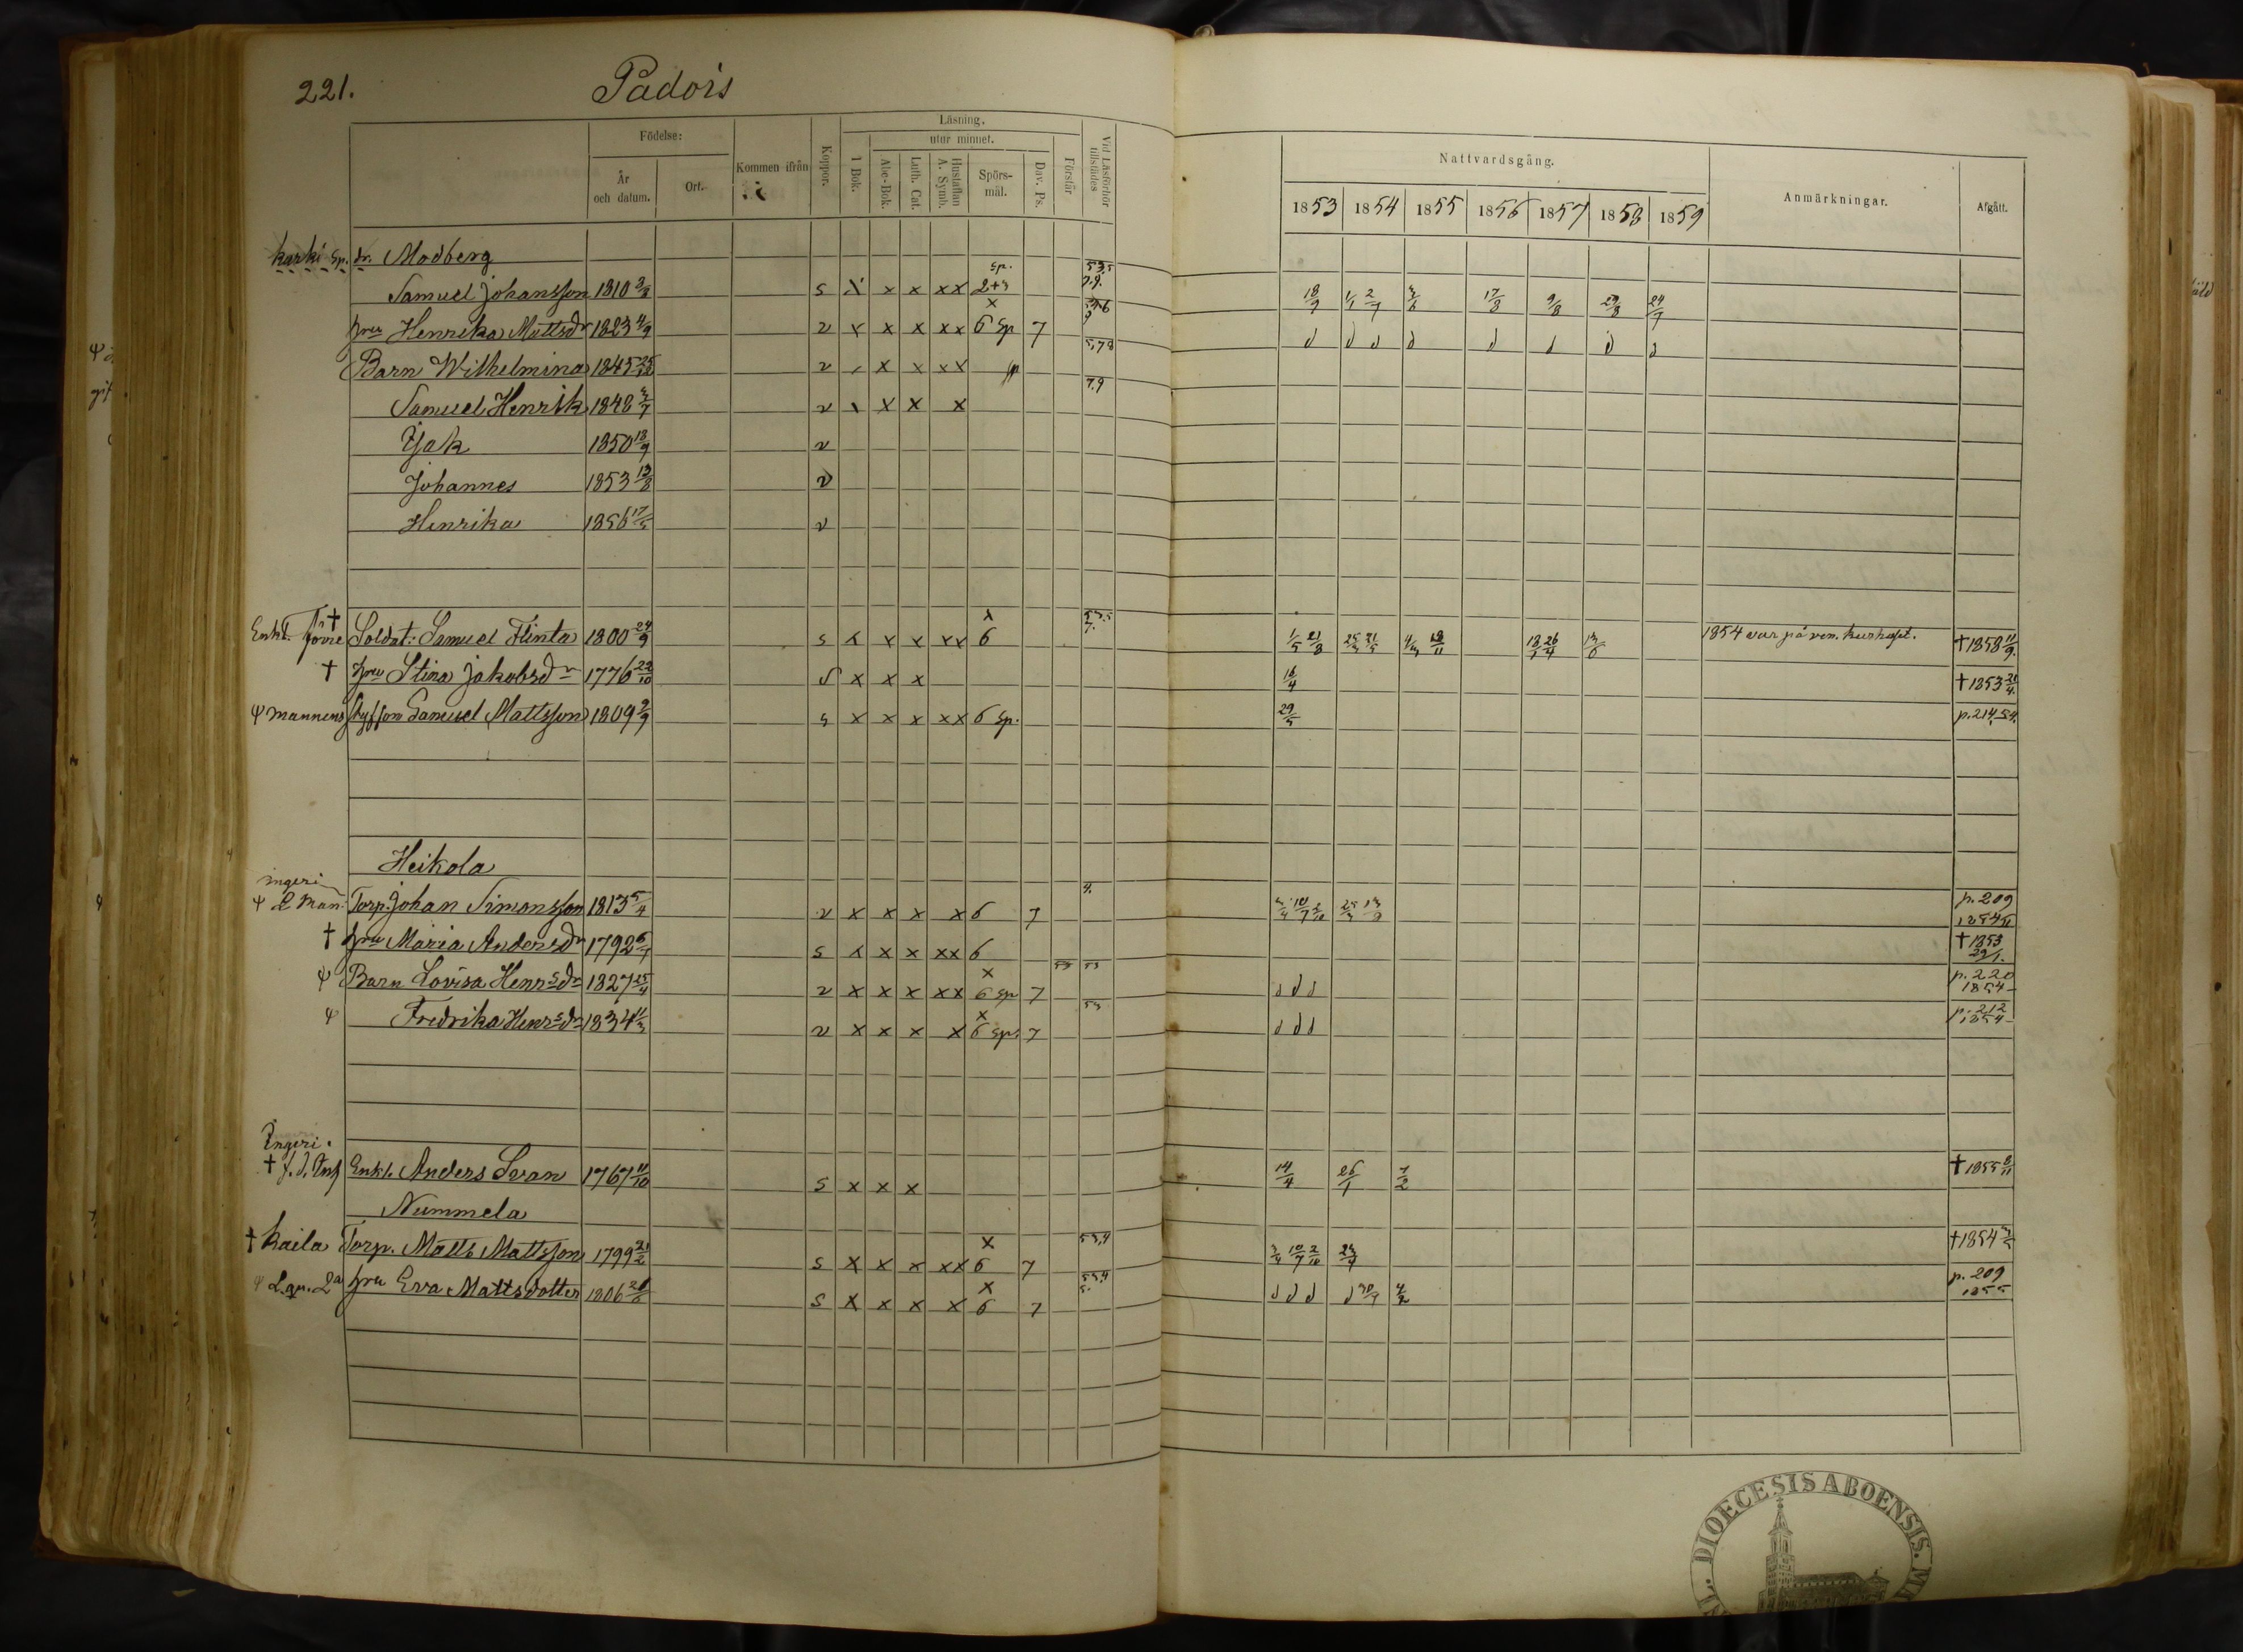 221.
Padois
Födelse:
År och datum.
Ort.
Kommen ifrån
Koppor.
Läsning.
utur minnet.
1 Bok.
Abc-Bok.
Luth. Cat.
Hustaflan A. Symb.
Spörs-mål.
Dav. Ps.
Förstår
Vid Läsförhör tillstädes
Nattvardsgång.
1853 1854 1855 1856 1857 1858 1859
Anmärkningar.
Afgått.
Karki sp. dr. Modberg
Samuel Johansson 1810 s x x x xx 2+3 18/9 17/8 9/8 29/8 24/7
hru Henrika Mattsdr 1823 4/9 v x x x xx 6 sp 7
Barn Wilhelmina 1845 v x x xx sp
Samuel Henrik 1848 v x x x 7.9
Isak 1850 18/9 v
Johannes 1853 13/8 v
Henrika 1856 17/5 v
Enkl. † Soldat: Samuel Flinta 1800 24/9 s x x x xx 6 1/5 21/8 1854 var på ven. kurhuset. †1858 11/9.
† hru Stina Jakobsdr 1776 22/10 s x x x 16/4 †1853 21/4.
ψ mannens styfson Samuel Mattsson 1809 2/9 s x x x xx 6 sp. 29/5 p. 214, 54.
Heikola
ingeri
ψ L man. Torp. Johan Simonsson 1813 5/4 v x x x x 6 7 p. 209
† hru Maria Andersdr 1792 s x x x xx 6 †1853 29/1.
ψ Barn Lovisa Henrsdr 1827 25/4 v x x x xx 6 sp 7 53 53 d d d p. 220 1854
ψ Fredrika Henrsdr 1834 11/3 v x x x x 6 sp. 7 53 d d d p. 212 1854
Ingeri.
† f. d. Enkl. Anders Svan 1767 11/10 s x x x 14/4 26/1 7/2 †1855 8/11
Nummela
† Kaila Torp. Matts Mattsson 1799 21/2 s x x x xx 6 7 53,4 †1854
hru Eva Mattsdotter 1806 s x x x x 6 7 53,4 5. d d d p. 209 1855
DIOECESIS ABOENSIS.